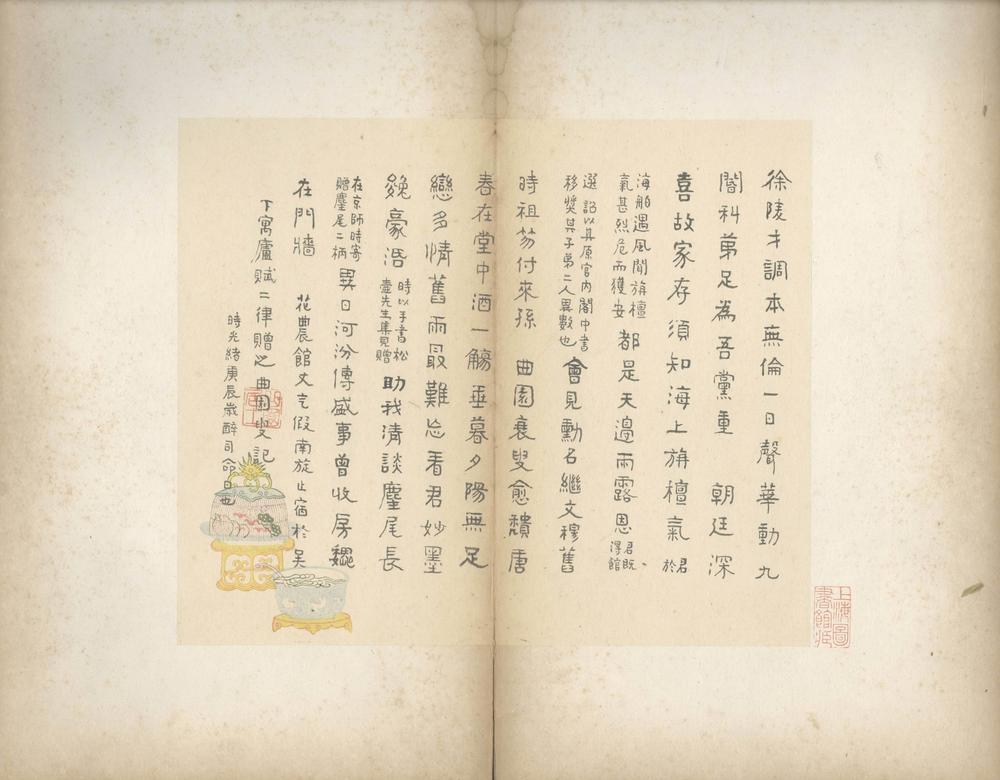 徐陵才調本無倫一日聲華動九
閽科第足為吾黨重 朝廷深
喜故家存須知海上旃檀氣 君於
海舶遇風聞旃檀
氣甚烈危而獲安 都是天邊雨露恩 君既
得館
選 詔以其原官內閣中書
移獎其子弟二人異數也 會見勳名繼文穆舊
時祖笏付來孫 曲園衰叟愈穨唐
春在堂中酒一觴垂暮夕陽無足
戀多情舊雨最難忘看君妙墨
兔豪湑 時以手書松
壺先生集見贈 助我清談麈尾長
在京師時寄
贈麈尾二柄 異日河汾傳盛事曾收房魏
在門牆 花農館丈乞假南旋止宿於吴
下寓廬賦二律贈之曲園叟記
時光緒庚辰歲醉司命日也
上海圖
書館藏